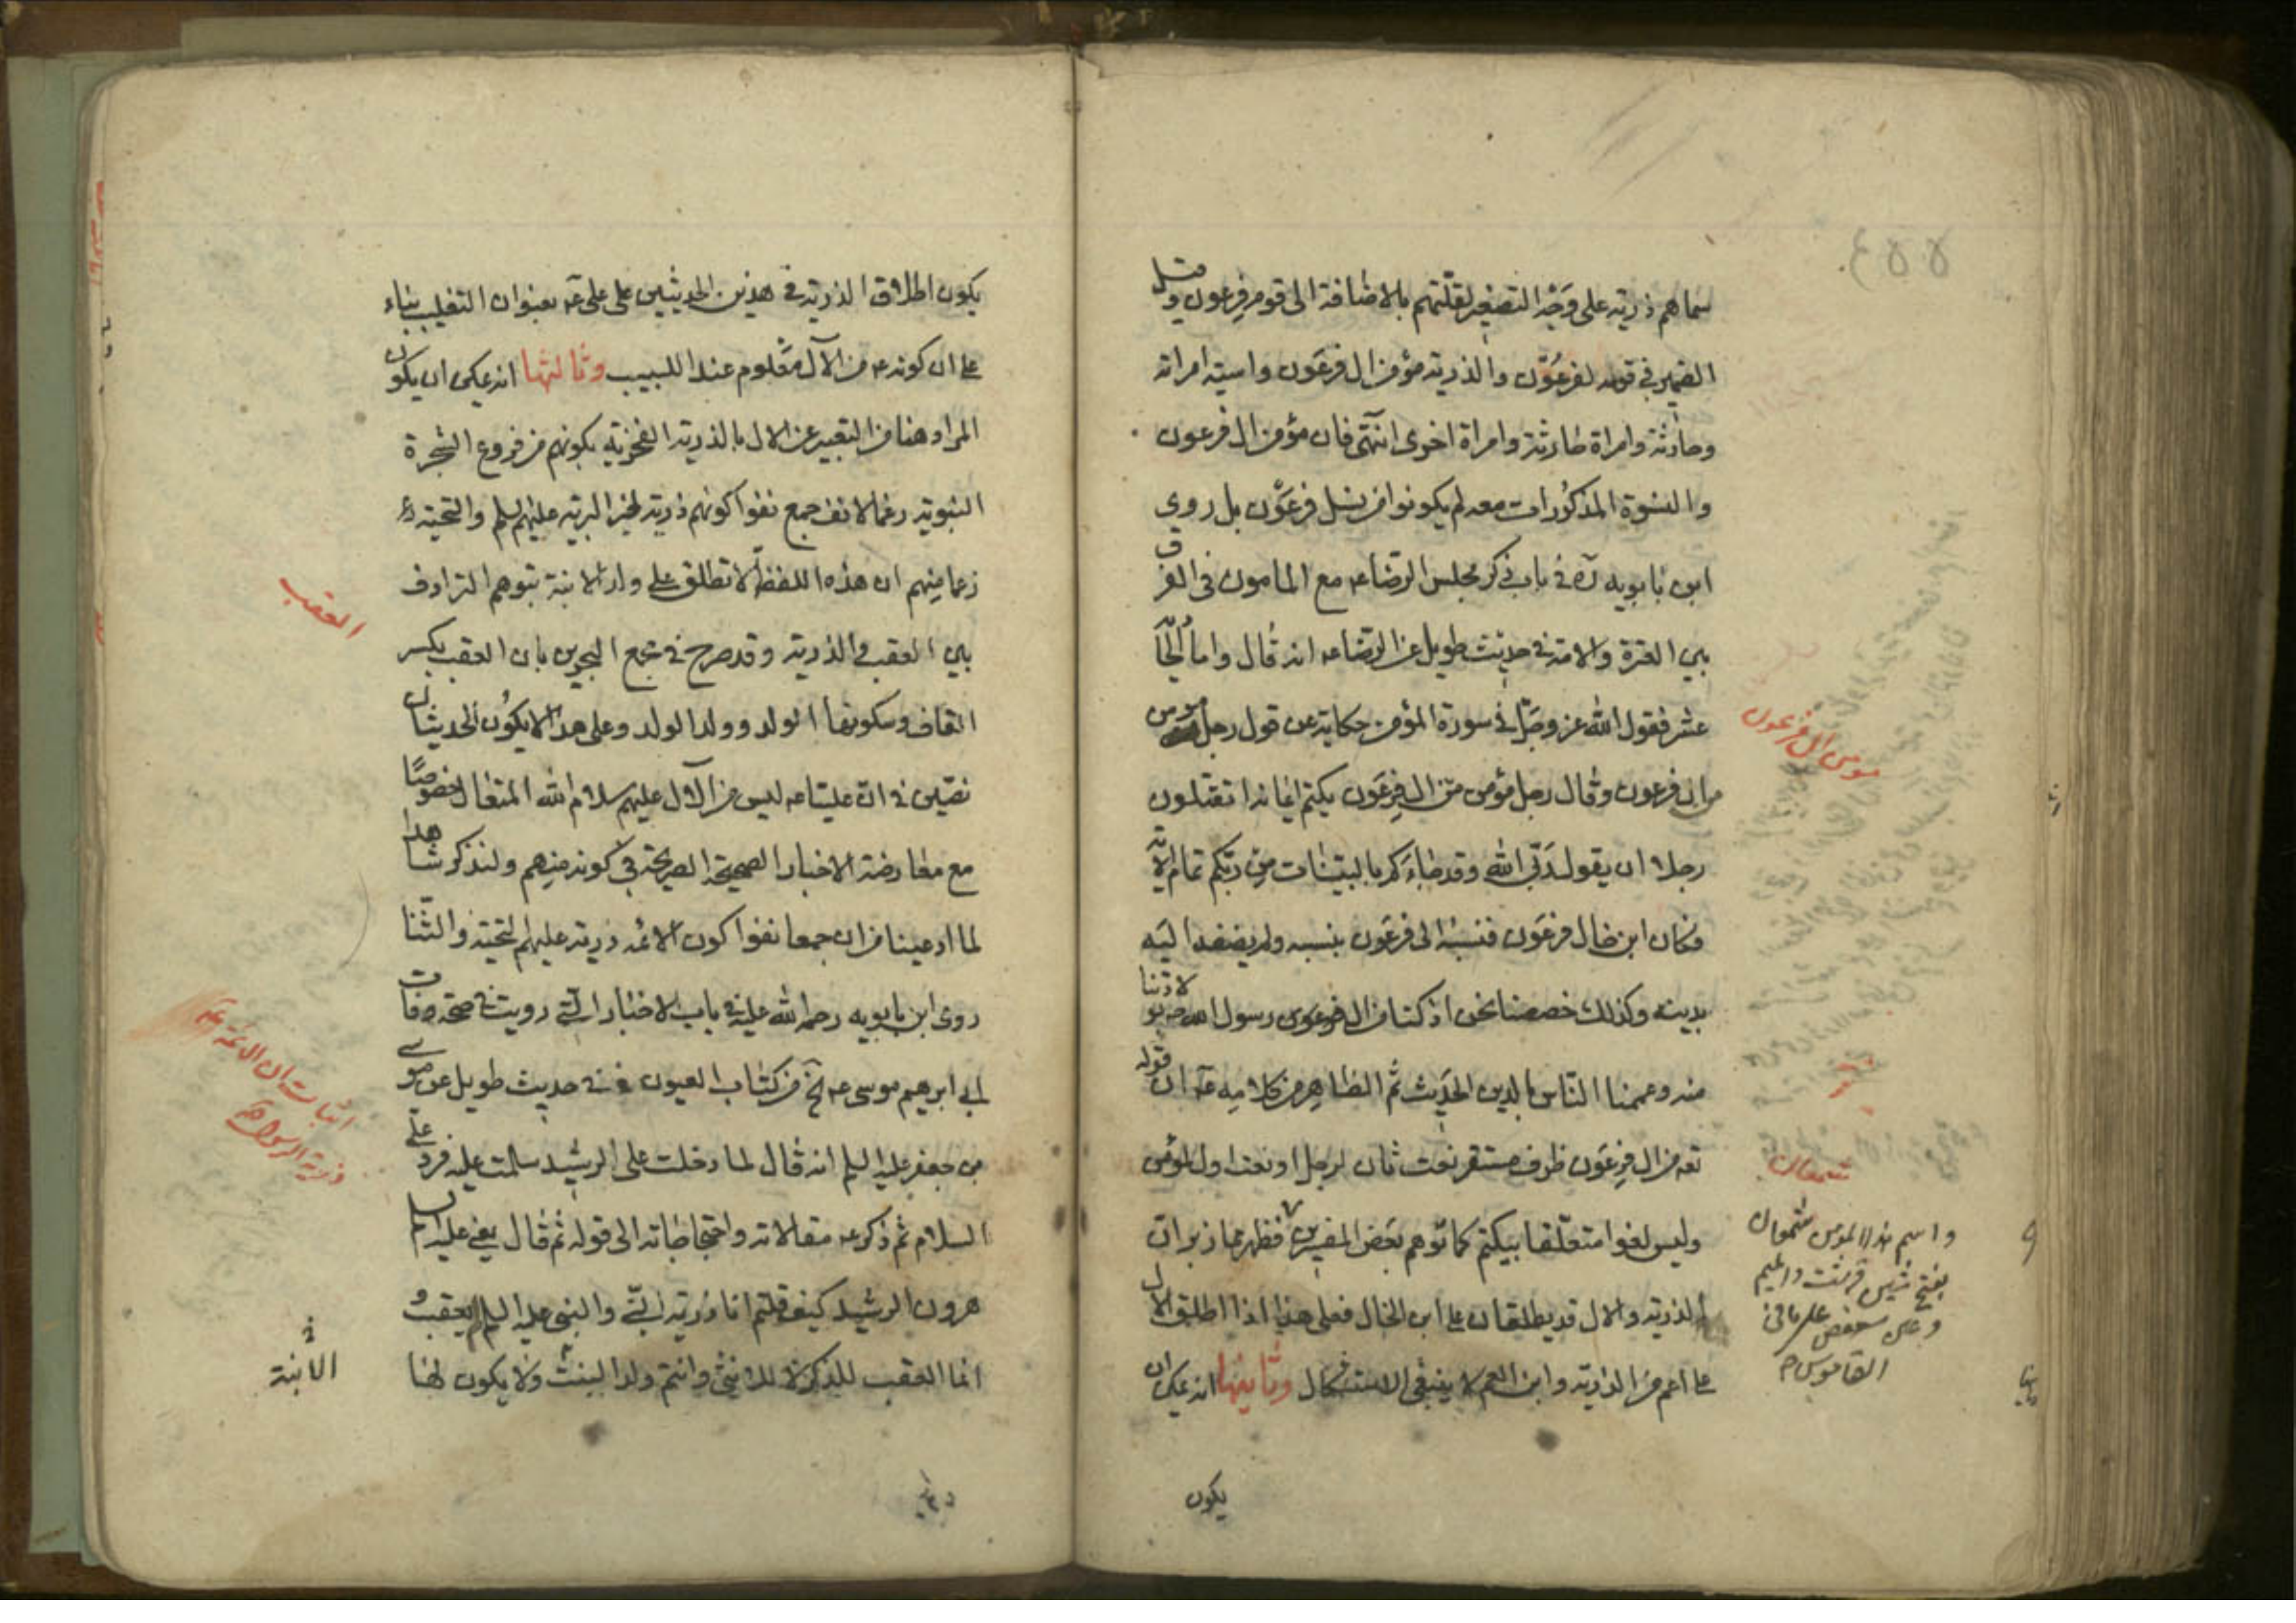 سماهم ذرية على وجه التصغير لقلتهم بالاضافة الى قوم فرعون وقيل
الضمير في قومه لفرعون والذرية مؤمن ال فرعون واسية امراته
وخازنه وامراة خازنه وامراة اخرى انتهى فان مؤمن ال فرعون
والنسوة المذكورات معه لم يكونوا من نسل فرعون بل روى
ابن بابويه ره في باب ذكر مجلس الرضا عه مع المامون في الفرق
بين العترة والامة في حديث طويل عن الرضا عه انه قال واما الحا
عشر فقول الله عز وجل في سورة المؤمن حكاية عن قول رجل مؤمن
من ال فرعون وقال رجل مؤمن من ال فرعون يكتم ايمانه اتقتلون
رجلا ان يقول ربي الله وقد جاءكم بالبينات من ربكم تمام الاية
فكان ابن خال فرعون فنسبه الى فرعون بنسبه ولم يضفه اليه
بدينه وكذلك خصصنا نحن اذ كنا من ال رسول الله ص بولادتنا
منه وعممنا الناس بالدين الحديث ثم الظاهر من كلامه عه ان قوله
تعه من ال فرعون ظرف مستقر نعت ثان لرجل او نعت اول لمؤمن
وليس لغوا متعلقا بيكتم كما توهم بعض المفسرين فظهر مما زبر ان
الذرية والال قد يطلقان على ابن الخال فعلى هذا اذا اطلق الال
على اعم من الذرية وابن العم لا ينبغي الاستشكال وثانيها انه يمكن ان
يكون
مؤمن ال فرعون
شمعان
واسم هذا المؤمن شمعان
بفتح شين قرشت والميم
وعين سعفص على ما في
القاموس
يكون اطلاق الذرية في هذين الحديثين على علي عه بعنوان التغليب بناء
على ان كونه عه من الآل معلوم عند اللبيب وثالثها انه يمكن ان يكون
المراد هنا من التعبير عن الال بالذرية الفخرية بكونهم من فروع الشجرة
النبوية رغما لانف جمع نفوا كونهم ذرية لخير البرية عليهم السلم والتحية
زعما منهم ان هذه اللفظة لا تطلق على ولد الابنة بتوهم الترادف
بين العقب والذرية وقد صرح في مجمع البحرين بان العقب بكسر
القاف وسكونها الولد وولد الولد وعلى هذا لا يكون الحديثان
نصين في ان عليا عه ليس من الآل عليهم سلام الله المتعال خصوصا
مع معارضة الاخبار الصحيحة الصريحة في كونه منهم ولنذكر شاهدا
لما ادعينا من ان جمعا نفوا كون الائمة ذرية عليهم التحية والثنا
روى ابن بابويه رحمه الله عليه في باب الاخبار التي رويت في صحة وفات
ابي ابرهيم موسى عه الخ من كتاب العيون في حديث طويل عن موسى
بن جعفر عليه السلم انه قال لما دخلت على الرشيد سلمت عليه فرد علي
السلام ثم ذكر عه مقالاته واحتجاجاته الى قوله ثم قال يعني عليه السلم
هرون الرشيد كيف قلتم انا ذرية النبي والنبي عليه السلم لم يعقب
انما العقب للذكر لا للانثى وانتم ولد البنت ولا يكون لها
العقب
اثبات ان الائمة عه
ذرية الرسول ص
الأبنة